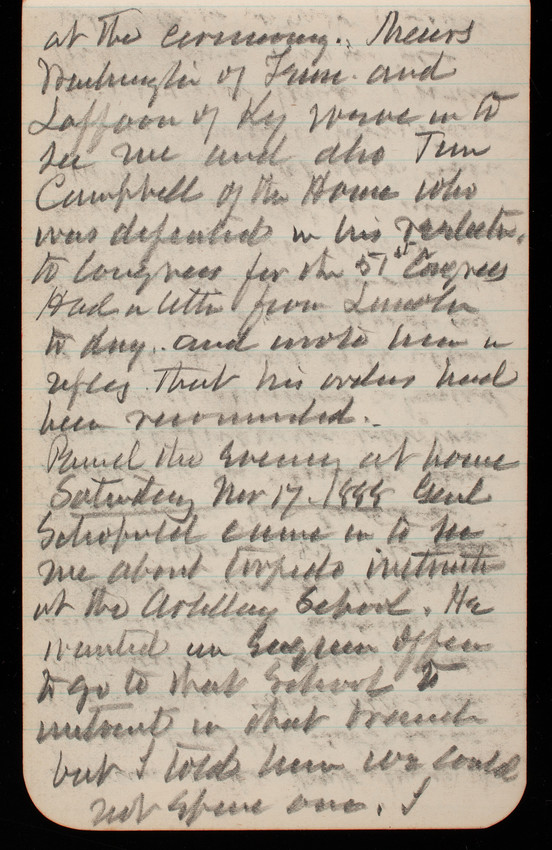 at the ceremony. Messrs
Washington of Tenn. and
Laffoon of Ky were in to
see me and also Tim
Campbell of the House who
was defeated in his reelectn.
to Congress for the 51st Congress
Had a letter from Lincoln
to day. and wrote him in
reply that his orders had
been recommended.
Passed the Evening at home
Saturday Nov 17. 1888 Genl
Schofield came in to see
me about torpedo instructn
at the Artillery School. He
wanted an Engineer Officer
to go to that School to
instruct in that branch
but I told him we could
not spare one. I